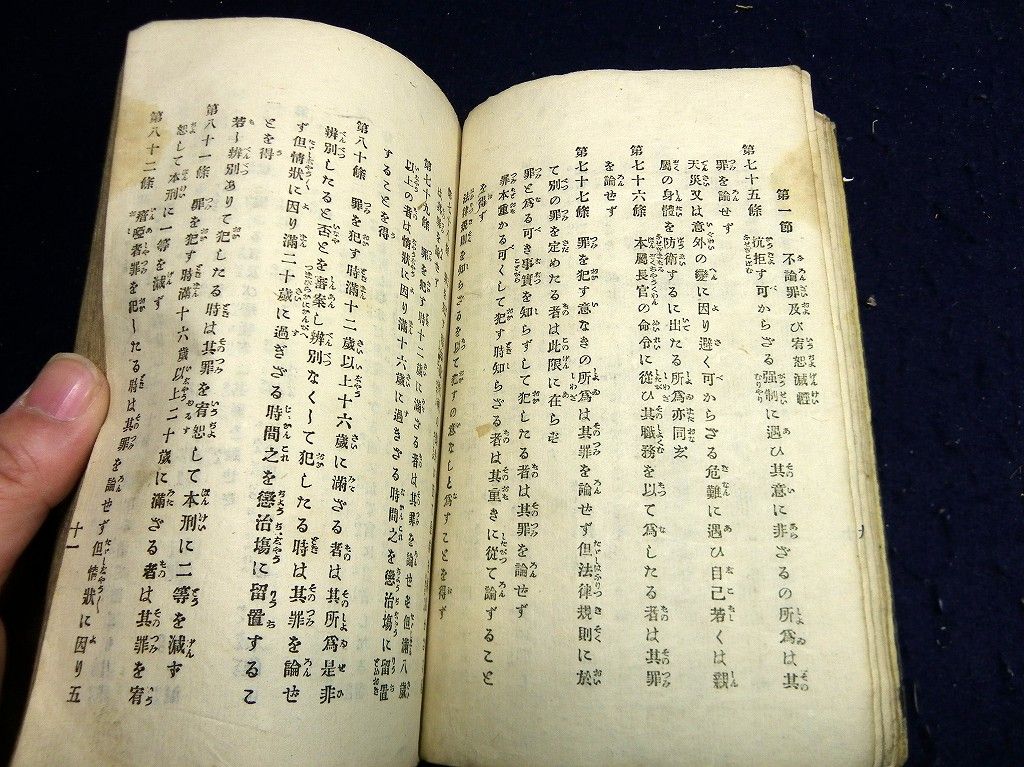 第一節 不論罪及び宥恕減輕
第七十五條 抗拒す可からざる强制に遇ひ其意に非ざるの所爲は其
罪を論せず
天災又は意外の變に因り避く可からざる危難に遇ひ自己若くは親
屬の身體を防衛するに出たる所爲亦同玄
第七十六條 本屬長官の命令に從ひ其職務を以て爲したる者は其罪
を論せず
第七十七條 罪を犯す意なきの所爲は其罪を論せず但法律規則に於
て別の罪を定めたる者は此限に在らを
罪と爲る可き事實を知らずして犯したる者は其罪を論せず
罪本重かる可くして犯す時知らざる者は其重きに從て論ずること
を得ず
法律規則を知らざるを以て犯すの意なしと爲すことを得ず
第七十九條 罪を犯す時十二歲に滿ざる者は其罪を論せを但滿八歲
以上の者は情狀に因り滿十六歲に過きざる時間之を懲治塲に留置
することを得
第八十條 罪を犯す時滿十二歲以上十六歲に滿ざる者は其所爲是非
辨別したると否とを審案し辨別なく〜て犯したる時は其罪を論せ
ず但情狀に因り滿二十歲に過ぎざる時間之を懲治塲に留置するこ
とを得
若〜辨別ありて犯したる時は其罪を宥恕して本刑に二等を減ず
第八十一條 罪を犯す時滿十六歲以上二十歲に滿ざる者は其罪を宥
恕して本刑に一等を減ず
第八十二條 瘖啞者罪を犯〜たる時は其罪を論せず但情狀に因り五
十一